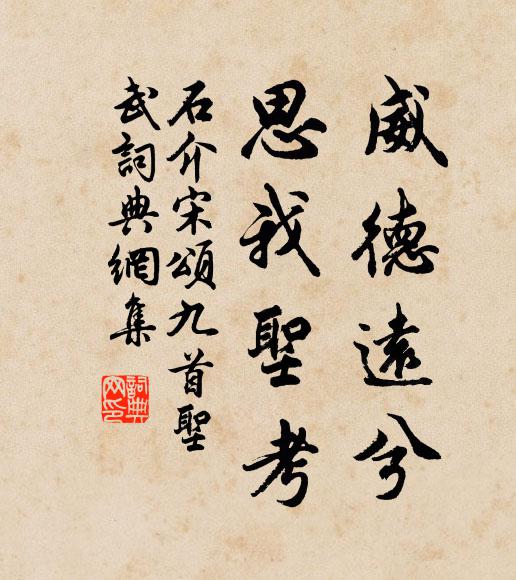 威德遠兮
思我聖考
石介宋頌九首聖
武詞典網集
詞典
网印